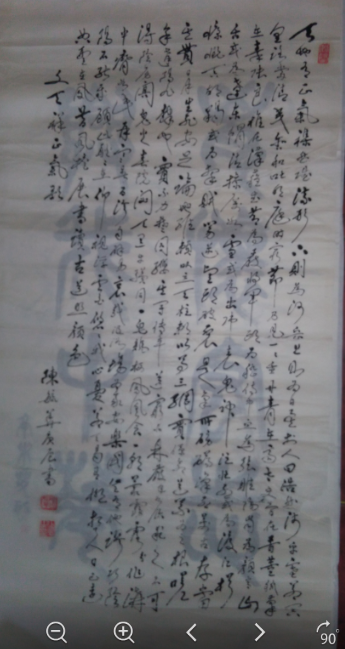 天地有正氣雜然賦流形下則為河嶽上則為日星於人曰浩然沛乎塞蒼冥
皇路當清夷含和吐明庭時窮節乃見一一垂丹青在齊太史簡在晉董狐筆
在秦張良椎在漢蘇武節為嚴將軍頭為嵇侍中血為張睢陽齒為顏常山
舌或為遼東帽清操厲冰雪或為出師表鬼神泣壯烈或為渡江楫
慷慨吞胡羯或為擊賊笏逆豎頭破裂是氣所磅礴凜烈萬古存當
其貫日月生死安足論地維賴以立天柱賴以尊三綱實繫命道義為之根嗟
余遘陽九隸也實不力楚囚纓其冠傳車送窮北鼎鑊甘如飴求之不可
得陰房闃鬼火春院閟天黑牛驥同一皂雞棲鳳凰食一朝蒙霧露分作溝
中瘠如此再寒暑百沴自辟易哀哉沮洳場為我安樂國豈有他繆巧陰
陽不能賊顧此耿耿在仰視浮雲白悠悠我心悲蒼天曷有極哲人日已遠
典刑在夙昔風簷展書讀古道照顏色
文天祥正氣歌
庚辰書
90°